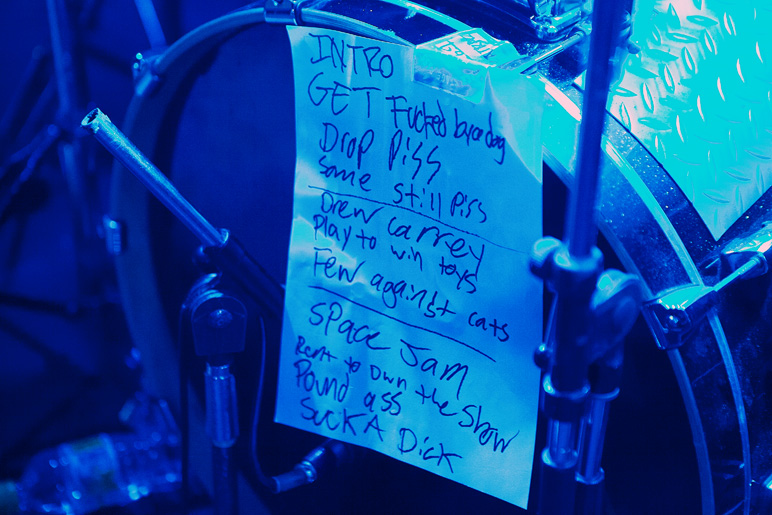 INTRO
GET Fucked by a dog
Drop Piss
Some still Piss
Drew Carrey
Play to win toys
Few against cats
Space Jam
Rent to own the Show
Pound ass
Suck A Dick